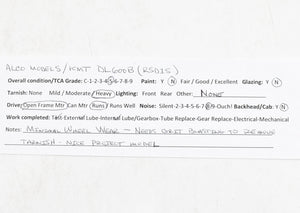 ALCO MODELS/KMT DL600B (RSD15)
Overall condition/TCA Grade: C-1-2-3-4-5-6-7-8-9 Paint: Y N Fair / Good / Excellent Glazing: Y N
Tarnish: None Mild / Moderate / Heavy Lighting: Front Rear Other: NONE
Drive: Open Frame Mtr Can Mtr Runs / Runs Well Noise: Silent-2-3-4-5-6-7-8-9-Ouch! Backhead/Cab: Y N
Work completed: Test-External Lube-Internal Lube/Gearbox-Tube Replace-Gear Replace-Electrical-Mechanical
Notes: MINIMAL WHEEL WEAR - NEEDS GRIT BLASTING TO REMOVE
TARNISH - NICE PROJECT MODEL